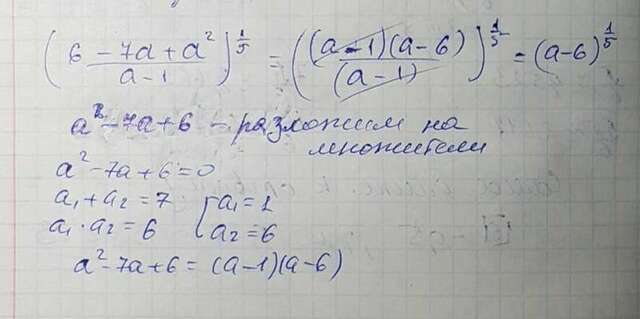 ((6 - 7a + a²)/(a - 1))^(1/5) = (((a - 1)(a - 6))/((a - 1)))^(1/5) = (a - 6)^(1/5)
a² - 7a + 6 - разложим на
множители
a² - 7a + 6 = 0
a₁ + a₂ = 7 { a₁ = 1
a₁ · a₂ = 6 { a₂ = 6
a² - 7a + 6 = (a - 1)(a - 6)